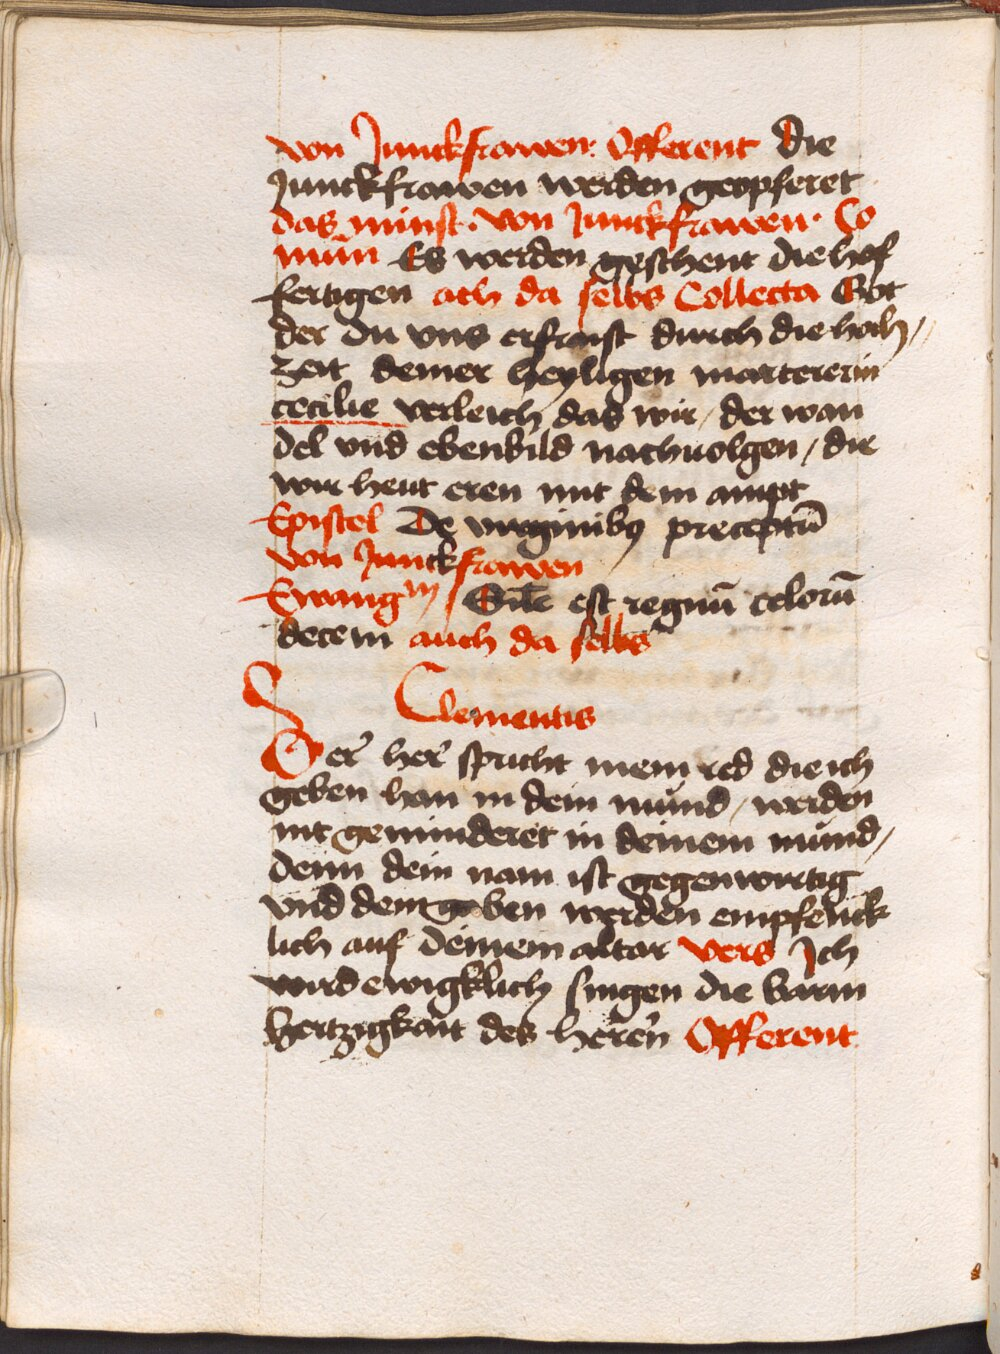 von Junckfrawen. Offerent Die
Junckfrawen werden geopferet
das minst. von Junckfrawen. Co
mun Es werden geschent die hof
fertigen ach da selbs Collecta Got
der du vns erfraist durch die hoch/
zeit deiner heyligen martererin
cecilie verleich das wir / der wan
del vnd ebenbild nachuolgen / die
wir heut eren mit dem ampt
Epistel De virginibꝫ preceptū
von Junckfrawen
Ewangm / Sile est regnū celorū
decem auch da selbs
Clementis
Der her spricht mein red die ich
geben han in dein mund / werden
nit geminderet in deinem mund /
denn dein nam ist gegenwirtig
vnd dein goben werden empfenck
lich auf deinem altar vers Ich
wird ewigklich singen die barm
hertzigkait des heren Offerent